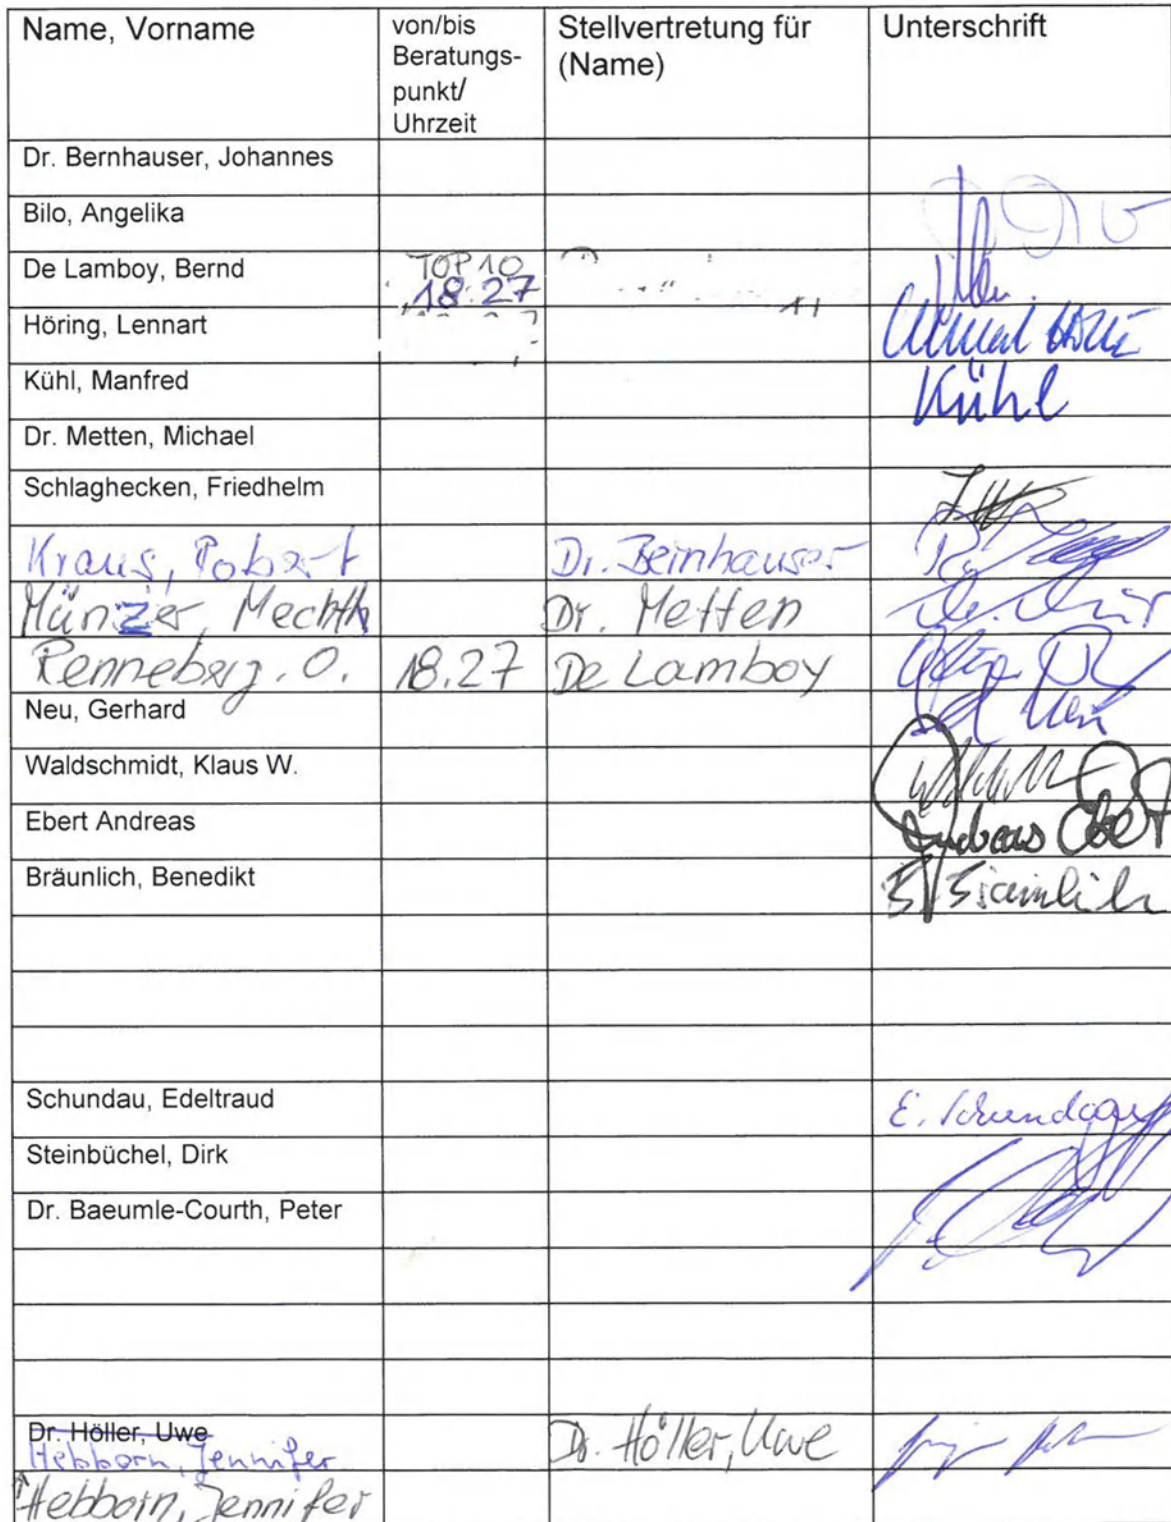 Name, Vorname von/bis Beratungs- punkt/ Uhrzeit Stellvertretung für (Name) Unterschrift
Dr. Bernhauser, Johannes
Bilo, Angelika
De Lamboy, Bernd TOP 10 18.27
Höring, Lennart
Kühl, Manfred Kühl
Dr. Metten, Michael
Schlaghecken, Friedhelm
Kraus, Robert Dr. Bernhauser
Münzer, Mechth Dr. Metten
Renneberg, O. 18.27 De Lamboy
Neu, Gerhard
Waldschmidt, Klaus W.
Ebert Andreas Andreas Ebert
Bräunlich, Benedikt B. Bräunlich
Schundau, Edeltraud E. Schundau
Steinbüchel, Dirk
Dr. Baeumle-Courth, Peter
Dr. Höller, Uwe Dr. Höller, Uwe
Hebborn, Jennifer
Hebborn, Jennifer